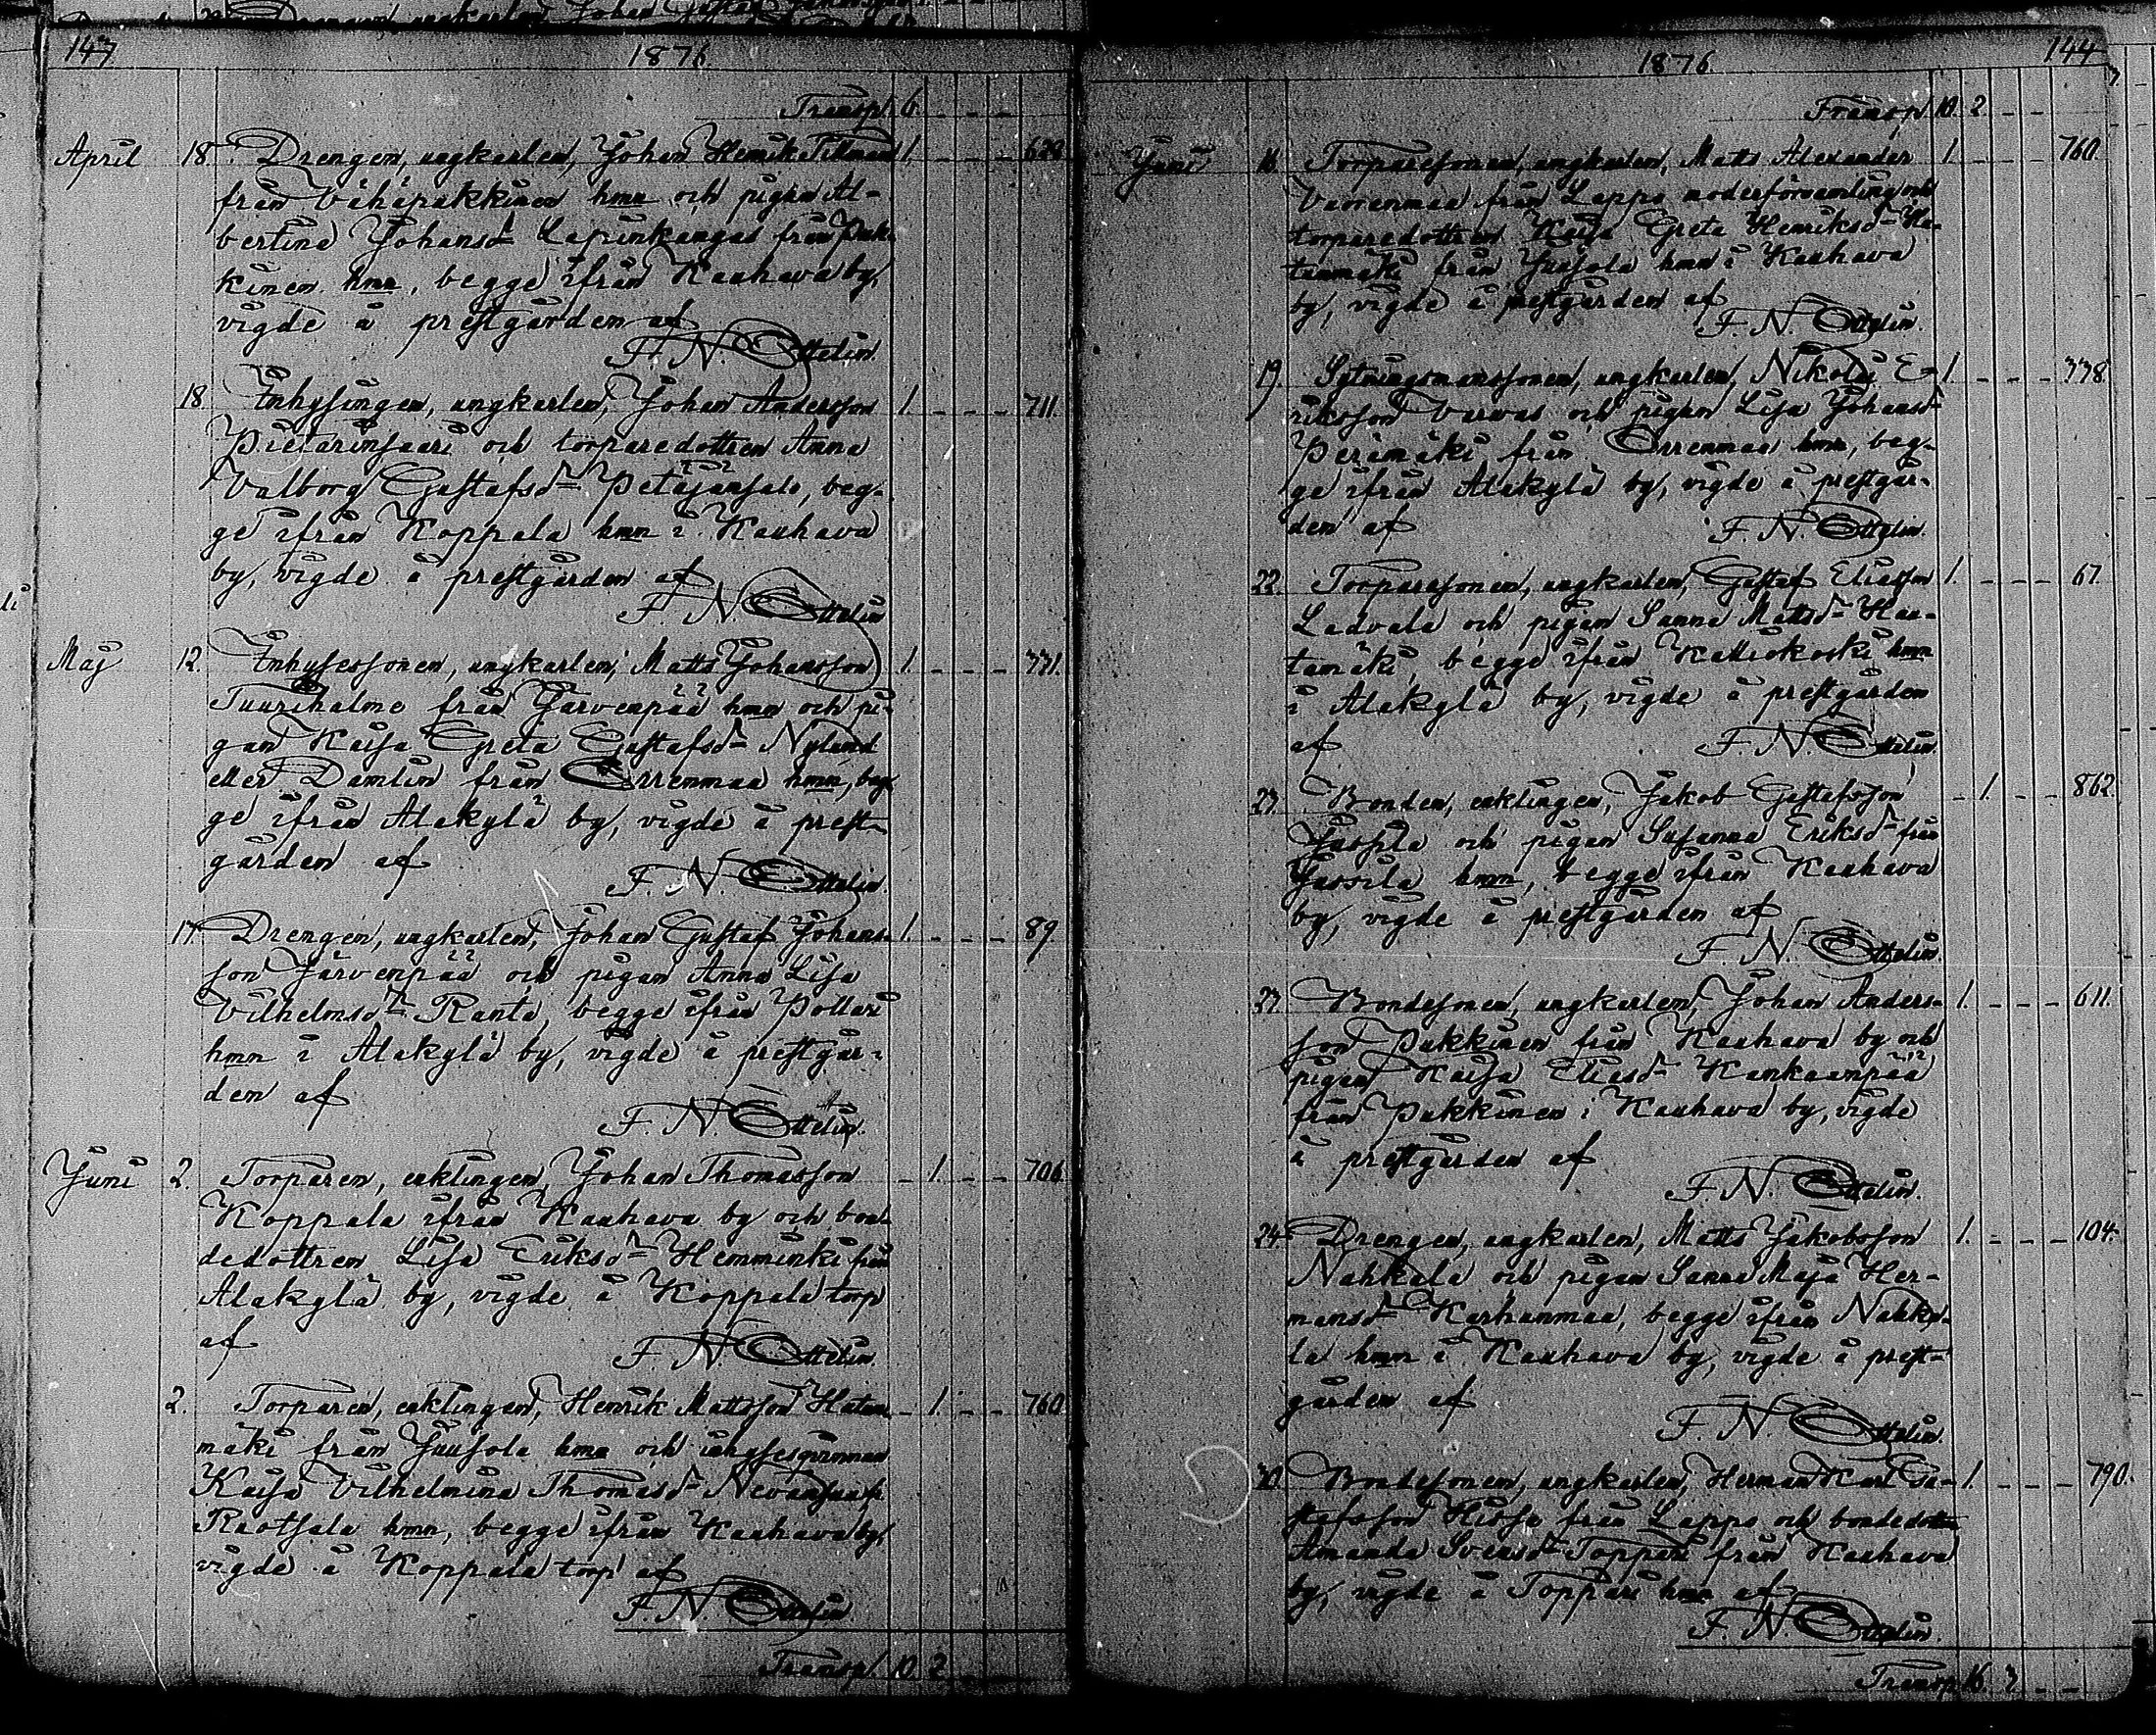 143
1876
Transp. 6. - - -
April 18. Drengen, ungkarlen, Johan Henrik Tillman 1. - - - 628
från Vähäpukkinen hmn och pigan Al-
bertina Johansd:r Lapinkangas från Puk-
kinen hmn, begge ifrån Kauhava by,
vigde å prestgården af
F. N. Ottelin.
18. Inhysingen, ungkarlen, Johan Andersson 1. - - - 711.
Pietarinsaari och torparedottren Anna
Valborg Gustafsd:r Petäjänsalo, beg-
ge ifrån Koppala hmn i Kauhava
by, vigde å prestgården af
F. N. Ottelin
Maj 12. Inhysessonen, ungkarlen, Matts Johansson 1. - - - 331.
Tuurihalme från Järvenpää hmn och pi-
gan Kaisa Greta Gustafsd:r Nylund
eller Damlin från Orrenmaa hmn, beg-
ge ifrån Alakylä by, vigde å prest-
gården af
F. N. Ottelin.
17. Drengen, ungkarlen, Johan Gustaf Johans- 1. - - - 89.
son Järvenpää och pigan Anna Lisa
Vilhelmsd:r Ranta, begge ifrån Pollari
hmn i Alakylä by, vigde å prestgår-
den af
F. N. Ottelin.
Juni 2. Torparen, enklingen, Johan Thomasson - 1. - - 706.
Koppala ifrån Kauhava by och bon-
dedottren Lisa Eriksd:r Hemminki från
Alakylä by, vigde å Koppala torp
af
F. N. Ottelin.
2. Torparen, enklingen, Henrik Mattsson Hatun- - 1. - - 760
mäki från Juusola hmn och inhysesqvinnan
Kaisa Vilhelmina Thomasd:r
Ruotsala hmn, begge ifrån Kauhava by,
vigde å Koppala torp af
F. N. Ottelin
Transp. 10. 2.
1876.
144
Transp. 10. 2. - -
Juni 16. Torparesonen, ungkarlen, Matts Alexander 1. - - - 760.
Vuorenmaa från Lappo moderförsamling och
torparedottren Kaisa Greta Henriksd:r Ha-
tunmäki från Juusola hmn i Kauhava
by, vigde å prestgården af
F. N. Ottelin.
19. Sytningsmanssonen, ungkarlen, Nikolai E- 1. - - - 338.
riksson Varvas och pigan Lisa Johansd:r
Perämäki från Orrenmaa hmn, beg-
ge ifrån Alakylä by, vigde å prestgår-
den af F. N. Ottelin.
22. Torparesonen, ungkarlen, Gustaf Eliasson 1. - - - 67.
Ladvala och pigan Sanna Mattsd:r Haa-
tamäki, begge ifrån Kalliokoski hmn
i Alakylä by, vigde å prestgården
af F. N. Ottelin
23. Bonden, enklingen, Jakob Gustafsson - 1. - - 862.
Jussila och pigan Susanna Eriksd:r från
Jussila hmn, begge ifrån Kauhava
by, vigde å prestgården af
F. N. Ottelin
23. Bondesonen, ungkarlen, Johan Anders- 1. - - - 611.
son Pukkinen från Kauhava by och
pigan Kaisa Eliasd:r Kankaanpää
från Pukkinen i Kauhava by, vigde
å prestgården af
F. N. Ottelin.
24. Drengen, ungkarlen, Matts Jakobsson 1. - - - 104.
Nahkala och pigan Sanna Maja Her-
mansd:r Karhunmaa, begge ifrån Nahka-
la hmn i Kauhava by, vigde å prest-
gården af
F. N. Ottelin.
30. Bondesonen, ungkarlen, Herman Karl Gu- 1. - - - 790.
stafsson Hissa från Lappo och bondedottren
Amanda Svensd:r Toppari från Kauhava
by, vigde å Toppari hmn af
F. N. Ottelin.
Transp. 16. 3. - -